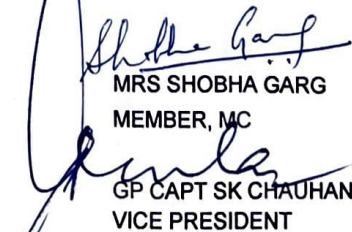 Shobha Garg
MRS SHOBHA GARG
MEMBER, MC
GP CAPT SK CHAUHAN
VICE PRESIDENT